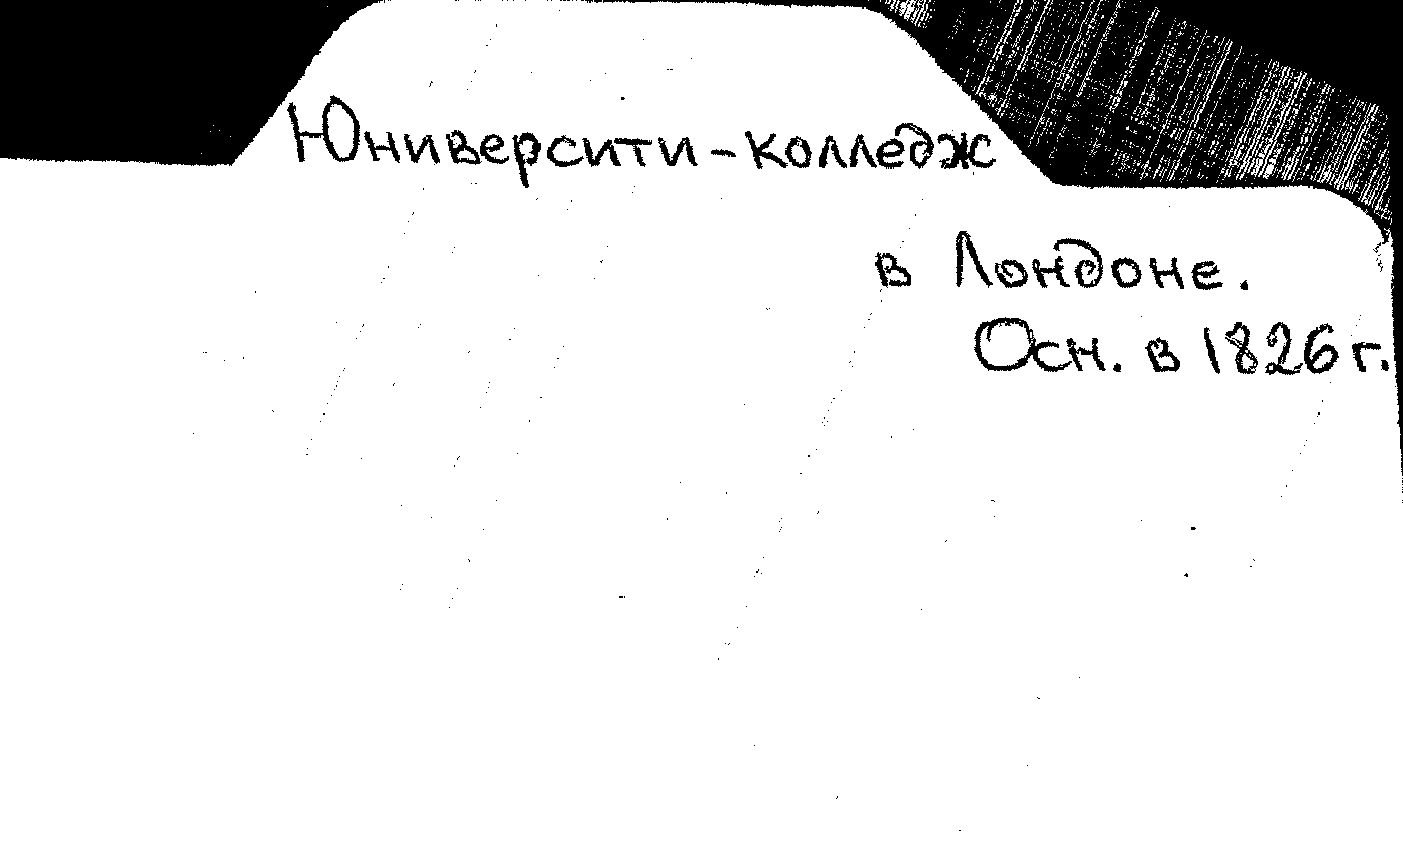 Юниверсити-колледж
в Лондоне.
Осн. в 1826 г.